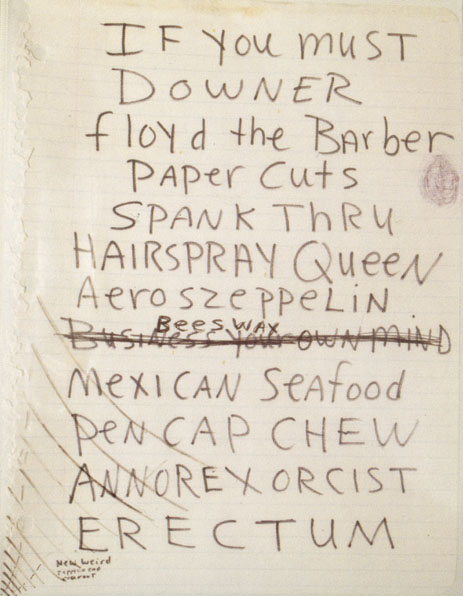 IF You must
DOWNER
floyd the Barber
PAPer Cuts
SPANK ThRU
HAIRSPRAY QueeN
AeroszeppeLiN
Bees wax
BusiNess Your OWN MiND
MexICAN SeAfood
PeN CAP CHEW
ANNOREXORCIST
ERECTUM
New weird